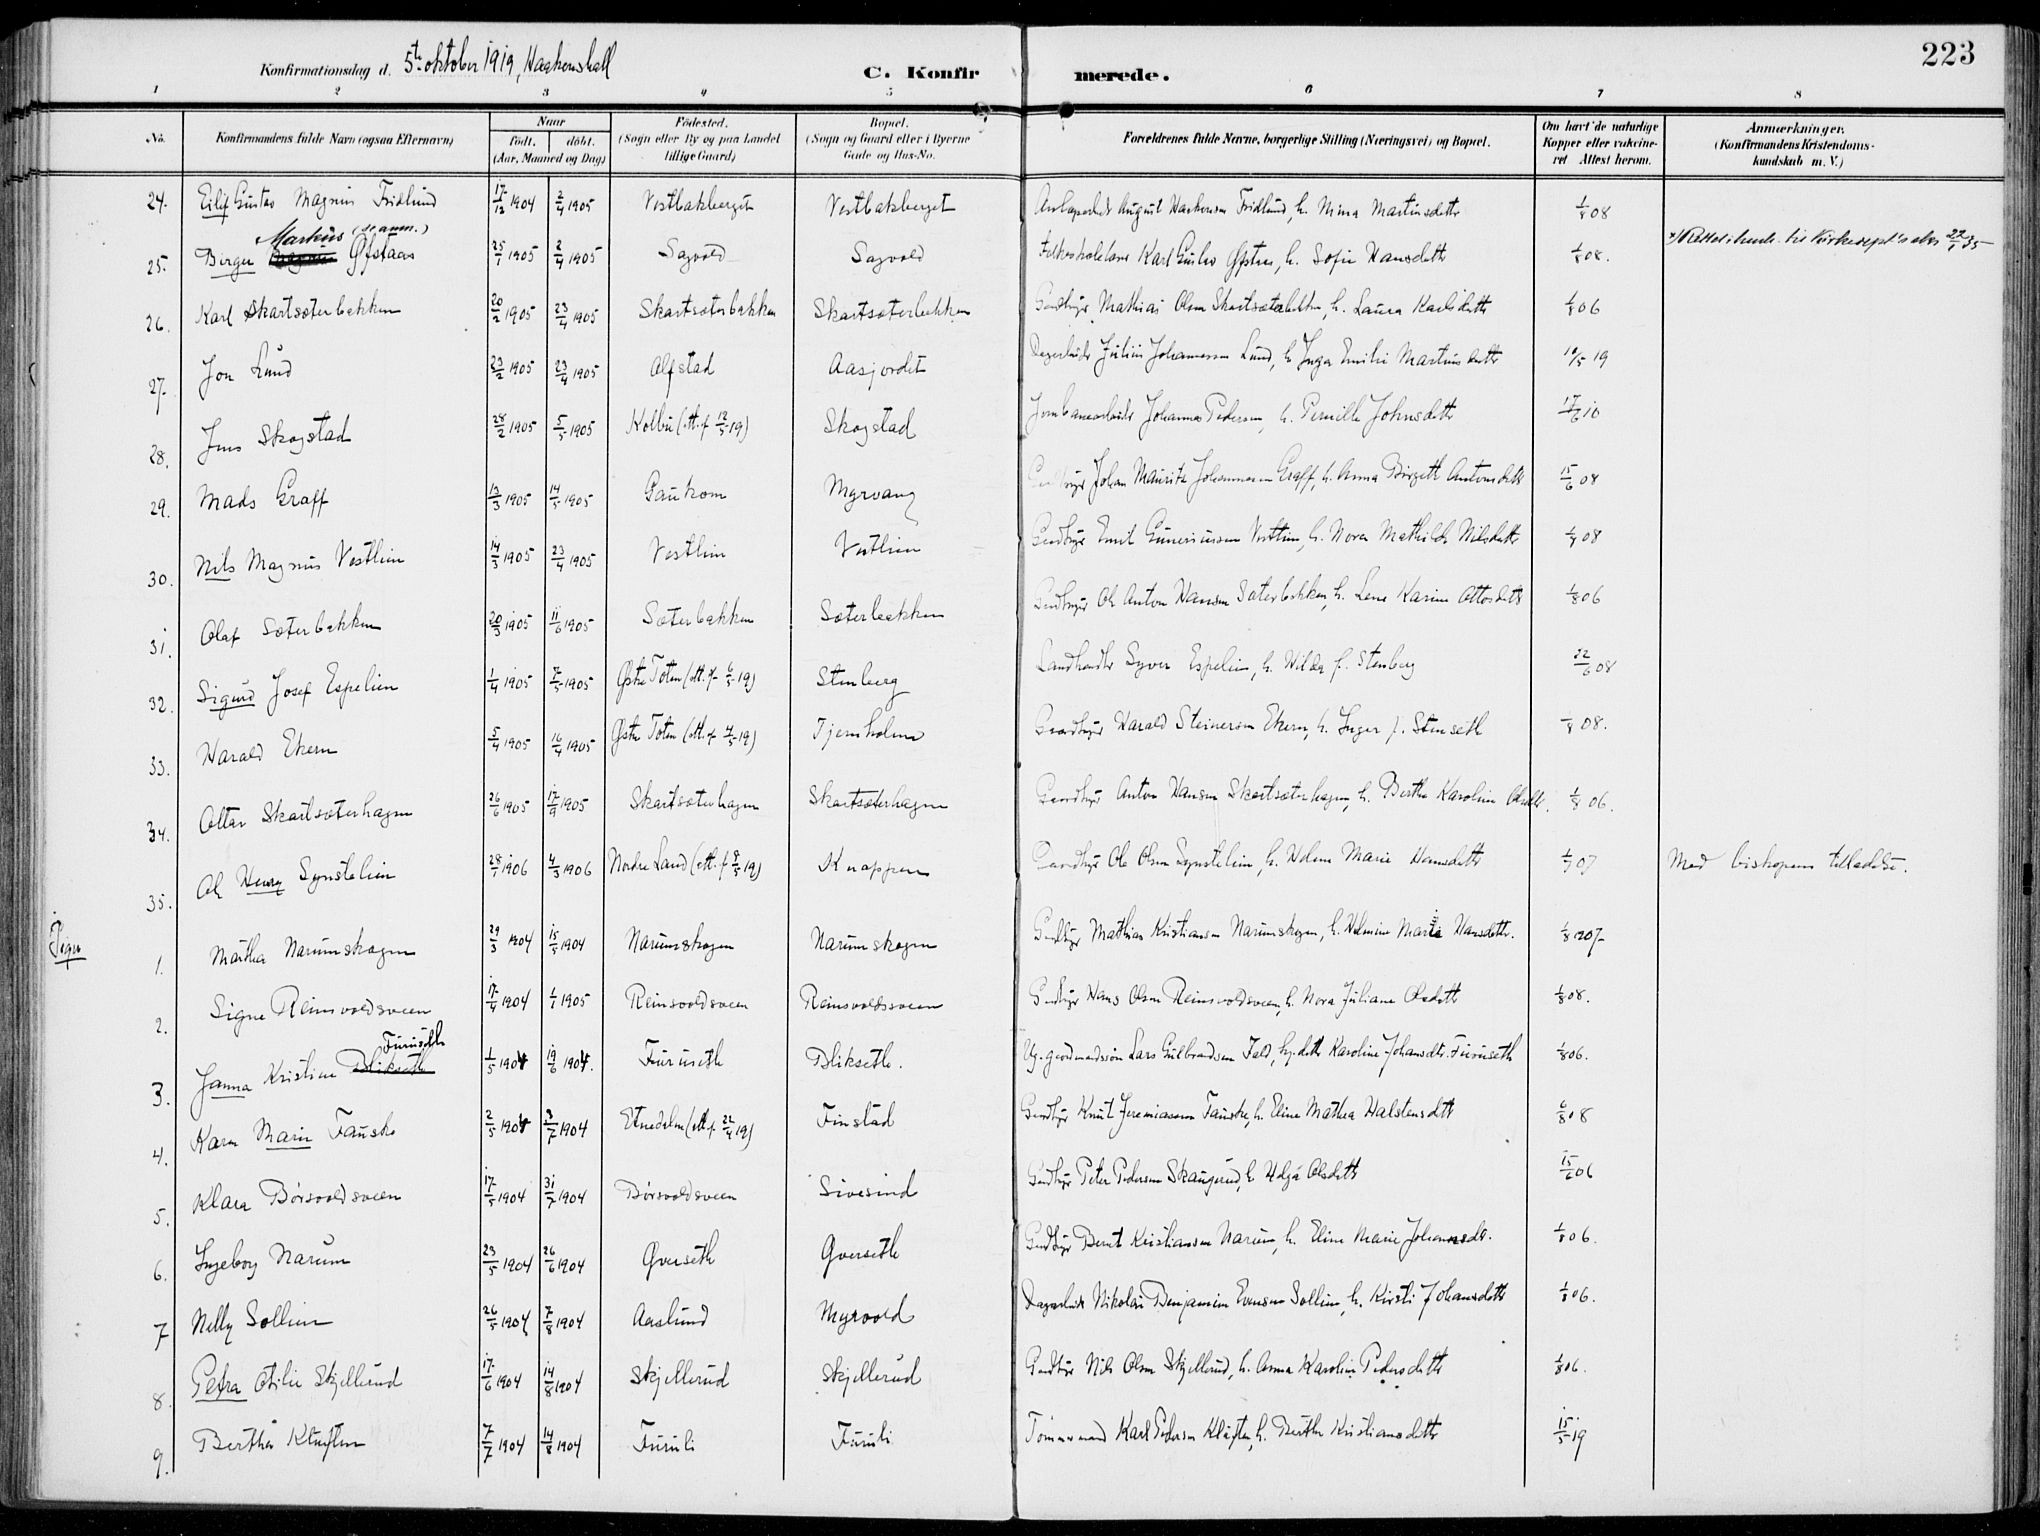 223
Konfirmationsdag d. 5te oktober 1919, Haakenshall C. Konfirmerede.
1 2 3 4 5 6 7 8
No. Konfirmandens fulde Navn (ogsaa Efternavn) Naar født. døbt. (Aar, Maaned og Dag) Fødested. (Sogn eller By og paa Landet tillige Gaard) Bopæl. (Sogn og Gaard eller i Byerne Gade og Hus-No. Forældrenes fulde Navne, borgerlige Stilling (Næringsvei) og Bopæl. Om havt de naturlige Kopper eller vakcineret Attest herom. Anmærkninger. (Konfirmandens Kristendomskundskab m. V.)
24. Eilif Gustav Magnus Fridlund 17/12 1904 2/4 1905 Vestbakberget Vestbakberget August Haakensen Fridlund, h. Mina Martinsdatter 1/8 08
Markus (se anm.)
25. Birger Øfstaas 25/1 1905 2/4 1905 Sagvold Sagvold Folkeskolelærer Karl Gustav Øfstaas, h. Sofie Hansdatter 1/8 08. 22/1 35
26. Karl Skartsæterbakken 20/2 1905 23/4 1905 Skartsæterbakken Skartsæterbakken Gardbrger Mathias Olsen Skartsæterbakken, h. Laura Karlsdatter 1/8 06
27. Jon Lund 23/2 1905 23/4 1905 Alfstad Aasjordet Dagarbeider Julius Johannesen Lund, h. Inga Emilie Martinsdatter 10/5 19
28. Jens Skogstad 28/2 1905 5/5 1905 Kolbu (att. af 12/5 19) Skogstad Jernbanearbeider Johannes Pedersen, h. Pernille Johnsdatter 17/6 10
29. Mads Graff 13/3 1905 14/5 1905 Gaukom Myrvang Johan Mauritz Johannesen Graff, h. Anna Birgith Antonsdatter 15/6 08
30. Nils Magnus Vestlien 14/3 1905 23/4 1905 Vestlien Vestlien Gardbrger Emil Guneriussen Vestlien, h. Nora Mathilde Nilsdatter 1/7 08
31. Olaf Sæterbakken 20/3 1905 11/6 1905 Sæterbakken Sæterbakken Gardbrger Ole Anton Hansen Sæterbakken, h. Lene Karine Ottosdatter 1/8 06
32. Sigurd Josef Espelien 1/4 1905 7/5 1905 Østre Toten (att. af 6/5 19) Stenberg Landhandler Syver Espelien, h. Hilda f. Stenberg 22/6 08
33. Harald Ekern 5/4 1905 16/4 1905 Østre Toten (att. af 4/5 19) Tjernholm Gaardbrger Harald Steinersen Ekern, h. Inger f. Stenseth 1/8 08.
34. Ottar Skartsæterhagen 26/6 1905 17/9 1905 Skartsæterhagen Skartsæterhagen Gaardbrger Anton Hansen Skartsæterhagen, h. Berthe Karoline Olsdtr. 1/8 06.
35. Ole Henry Synstelien 28/1 1906 4/3 1906 Nordre Land (att. af 8/5 19) Knappen Gaardbrger Ole Olsen Synstelien, h. Helene Marie Hansdatter 1/7 07 Med biskopens tilladelse.
Piger
1. Martha Narumskogen 29/3 1904 15/5 1904 Narumskogen Narumskogen Gardbrger Mathias Kristiansen Narumskogen, h. Helmine Marie Hansdatter. 1/8 1907
2. Signe Reinsvoldsveen 17/4 1904 1/1 1905 Reinsvoldsveen Reinsvoldsveen Gardbrger Hans Olsen Reinsvoldsveen, h. Nora Juliane Olsdatter 1/8 08.
Furuseth
3. Janna Kristine Blikseth 1/5 1904 19/6 1904. Furuseth Blikseth. Ug. gaardmandssøn Lars Gulbrandsen Fald, Karoline Johansdtr. Furuseth 1/8 06.
4. Karen Marie Fauske 2/5 1904 3/7 1904 Etnedalen (att. af 22/4 19) Finstad Gardbrger Knut Jeremiassen Fauske, h. Eline Mathea Halstensdatter 6/8 08
5. Klara Børsvoldsveen 17/5 1904 31/7 1904 Børsvoldsveen Sivesind Gardbrger Peter Pedersen Skaugerud, h. Helga Olsdatter 15/6 06
6. Ingeborg Narum 23/5 1904 26/6 1904 Gverseth Gverseth Gardbrger Bernt Kristiansen Narum, h. Eline Marie Johannesdtr. 1/8 06.
7 Nelly Sollien 26/5 1904 7/8 1904 Aaslund Myrvold Dagarbeider Nikolai Benjamin Evensen Sollien, h. Kirsti Johansdatter 1/8 06.
8. Petra Otilie Skjellerud 17/6 1904 14/8 1904 Skjellerud Skjellerud Gardbrger Nils Olsen Skjellerud, h. Anna Karoline Pedersdatter 1/8 06.
9. Berthe Kluften 7/7 1904 14/8 1904 Furuli Furuli Tømmermand Karl Pedersen Kluften, h. Berthe Kristiansdatter 15/5 19